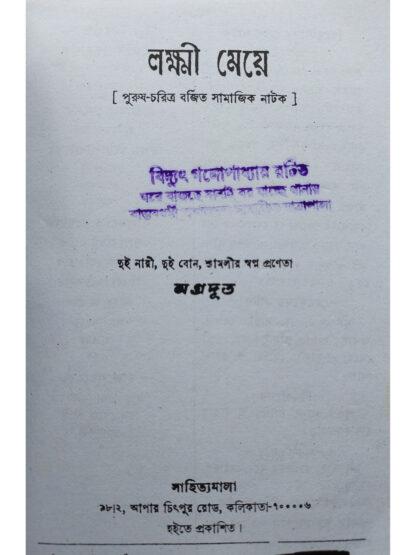 লক্ষ্মী মেয়ে
[ পুরুষ-চরিত্র বর্জিত সামাজিক নাটক ]
বিদ্যুৎ গঙ্গোপাধ্যায় রচিত
দুই নারী, দুই বোন, শ্যামলীর স্বপ্ন প্রণেতা
অগ্রদূত
সাহিত্যমালা
৯৮/২, আপার চিৎপুর রোড, কলিকাতা-৭০০০০৬
হইতে প্রকাশিত।